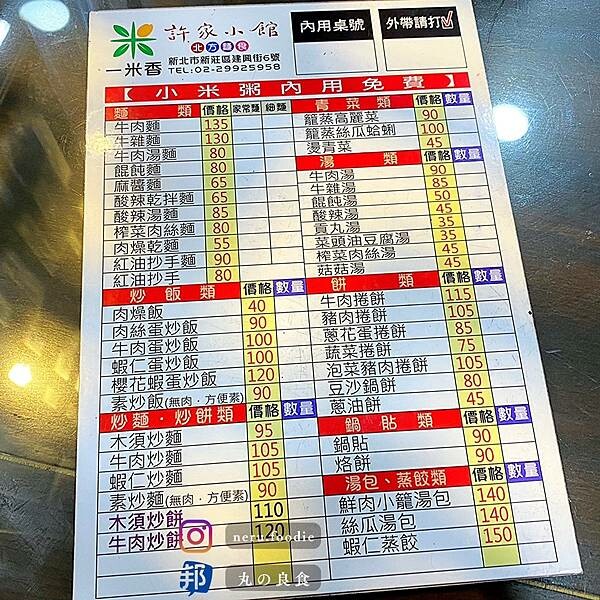 一米香
許家小館
北方麵食
新北市新莊區建興街6號
TEL:02-29925958
內用桌號
外帶請打✓
【小米粥內用免費】
麵類 價格 家常麵 細麵
牛肉麵 135
牛雜麵 130
牛肉湯麵 80
餛飩麵 80
麻醬麵 65
酸辣乾拌麵 65
酸辣湯麵 85
榨菜肉絲麵 80
肉燥乾麵 55
紅油抄手麵 90
紅油抄手 80
炒飯類 價格 數量
肉燥飯 40
肉絲蛋炒飯 90
牛肉蛋炒飯 100
蝦仁蛋炒飯 100
櫻花蝦蛋炒飯 120
素炒飯(無肉．方便素) 90
炒麵．炒餅類 價格 數量
木須炒麵 95
牛肉炒麵 105
蝦仁炒麵 105
素炒麵(無肉．方便素) 90
木須炒餅 110
牛肉炒餅 120
青菜類 價格 數量
籠蒸高麗菜 90
籠蒸絲瓜蛤蜊 100
燙青菜 45
湯類 價格 數量
牛肉湯 90
牛雜湯 85
餛飩湯 50
酸辣湯 45
貢丸湯 35
菜頭油豆腐湯 35
榨菜肉絲湯 45
菇菇湯 45
餅類 價格 數量
牛肉捲餅 115
豬肉捲餅 105
蔥花蛋捲餅 85
蔬菜捲餅 75
泡菜豬肉捲餅 105
豆沙鍋餅 80
蔥油餅 45
鍋貼類 價格 數量
鍋貼 90
烙餅 90
湯包、蒸餃類 價格 數量
鮮肉小籠湯包 140
絲瓜湯包 140
蝦仁蒸餃 150
neru.foodie
邦 丸の良食